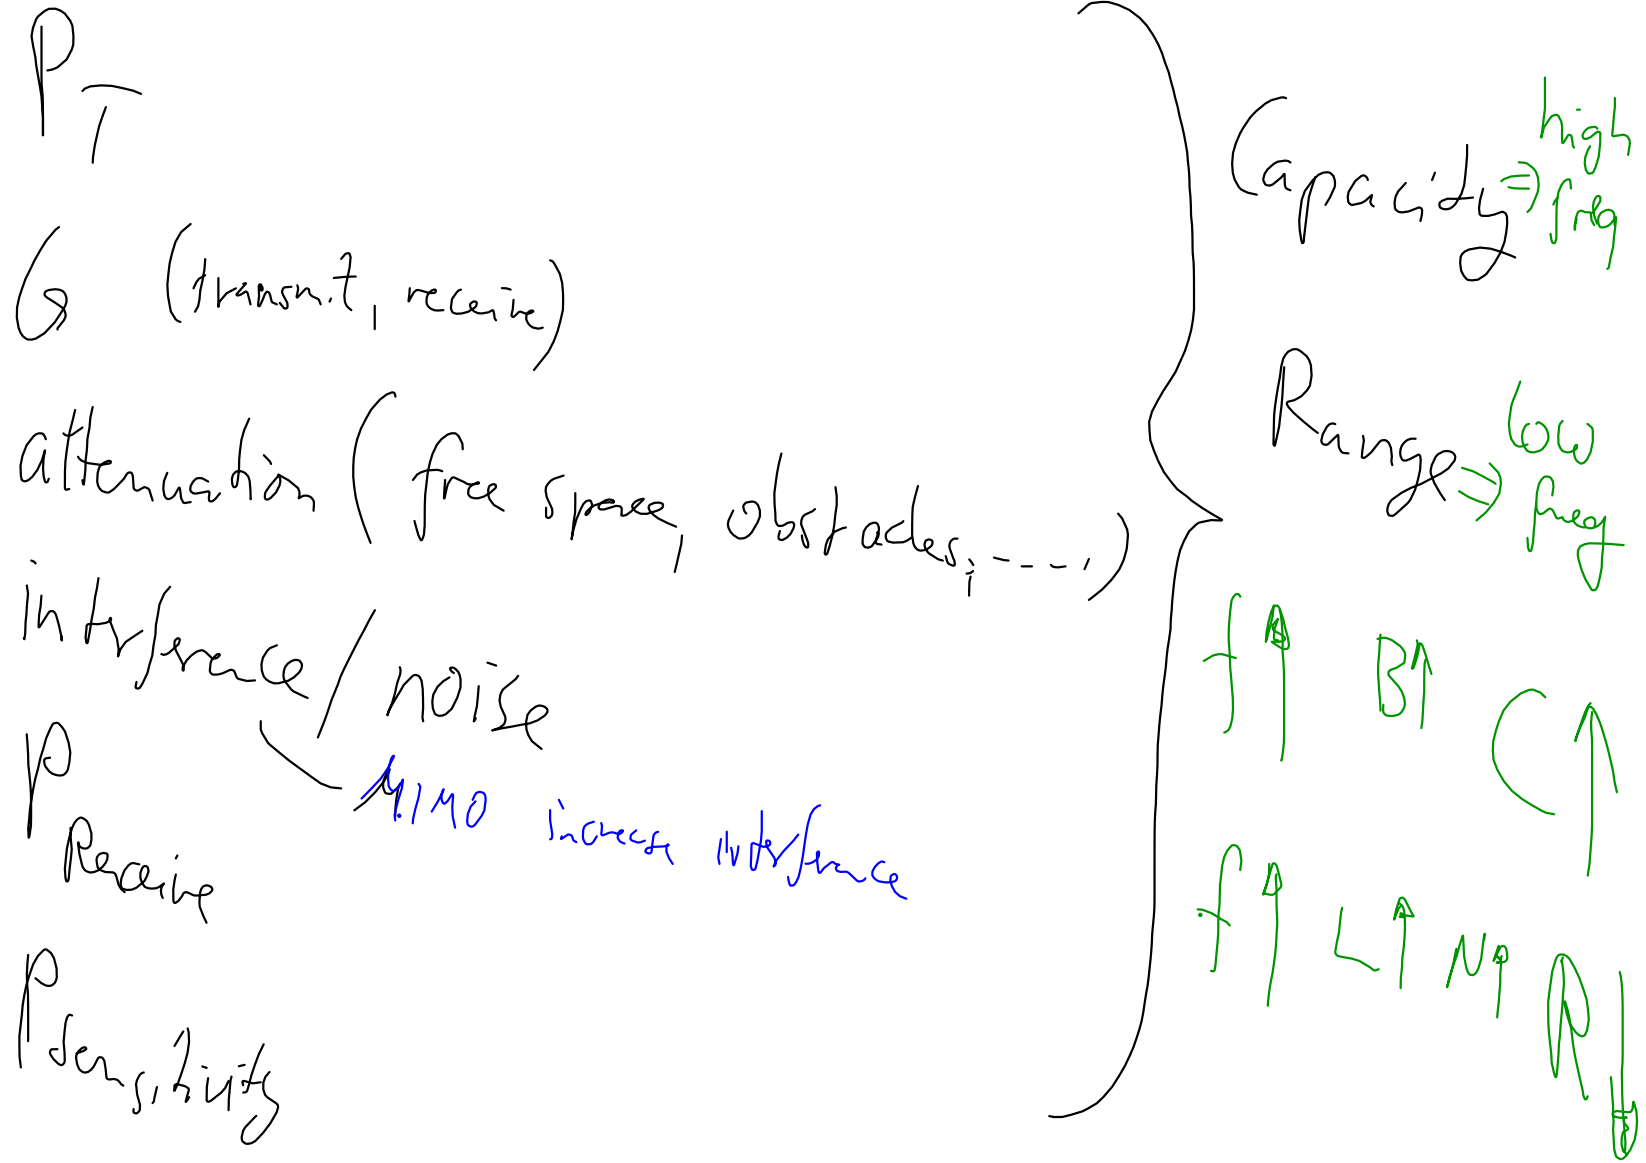 P_T
G (transmit, receive)
attenuation (free space, obstacles, ....)
interference / noise
MIMO increase interference
P_Receive
P_Sensitivity
Capacity ⇒ high freq
Range ⇒ low freq
f↑ B↑ C↑
f↑ L↑ N↑ R↓